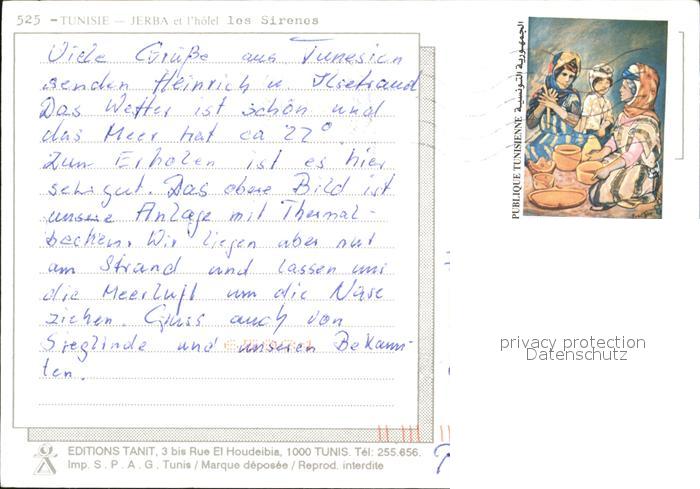 525 - TUNISIE — JERBA et l'hôtel les Sirenes
Viele Grüße aus Tunesien
senden Heinrich u. Ilsetraud
Das Wetter ist schön und
das Meer hat ca 22°.
Zum Erholen ist es hier
sehr gut. Das obere Bild ist
unsere Anlage mit Thermal-
becken. Wir liegen aber nur
am Strand und lassen uns
die Meerluft um die Nase
ziehen. Gruss auch von
Sieglinde und unseren Bekann-
ten.
EDITIONS TANIT, 3 bis Rue El Houdeibia, 1000 TUNIS. Tél: 255.656.
Imp. S. P. A. G. Tunis / Marque déposée / Reprod. interdite
PUBLIQUE TUNISIENNE الجمهورية التونسية
privacy protection
Datenschutz